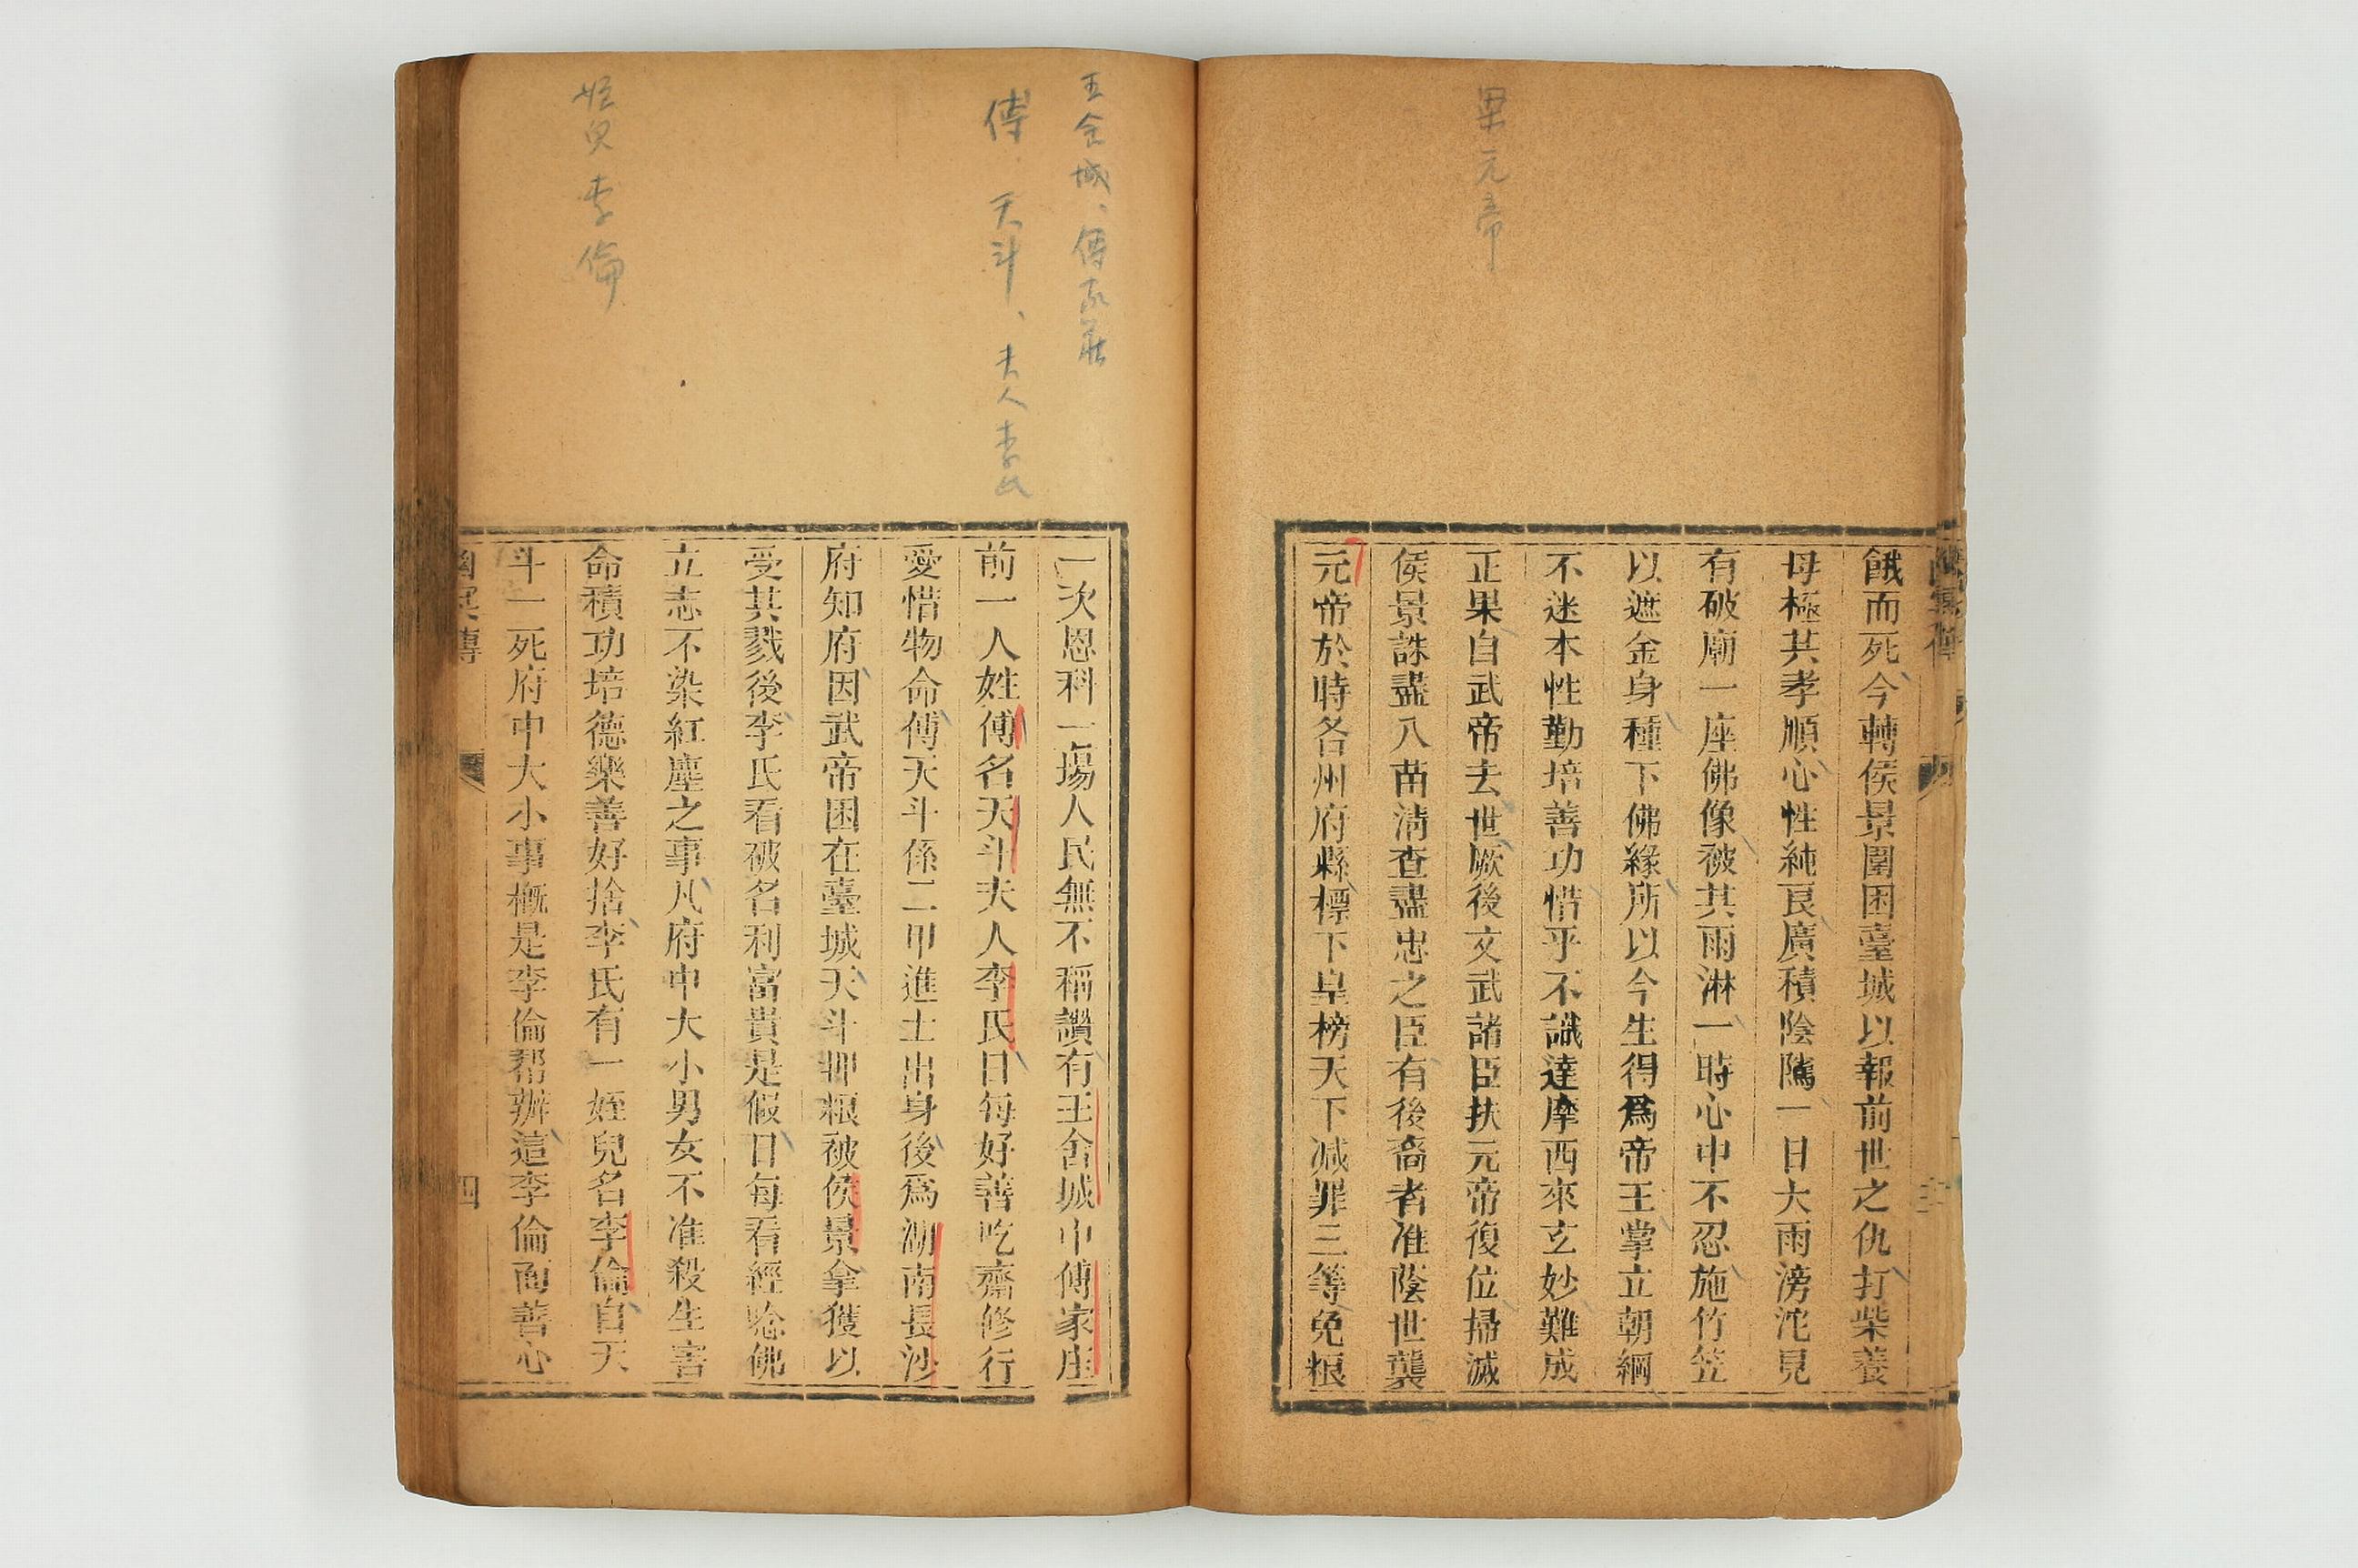 梁元帝
餓而死今轉侯景圍困臺城以報前世之仇打柴養
母極其孝順心性純良廣積陰隲一日大雨滂沱見
有破廟一座佛像被其雨淋一時心中不忍施竹笠
以遮金身種下佛緣所以今生得爲帝王掌立朝綱
不迷本性勤培善功惜乎不識達摩西來玄妙難成
正果自武帝去世厥後文武諸臣扶元帝復位掃滅
侯景誅盡八苗淸查盡忠之臣有後裔者准蔭世襲
元帝於時各州府縣標下皇榜天下减罪三等免粮
王舍城、傅家莊
傅 天斗、夫人李氏
姪兒李倫
一次恩科一塲人民無不稱讚有王舍城中傅家庄
前一人姓傅名天斗夫人李氏日每好善吃齋修行
愛惜物命傅天斗係二甲進士出身後爲湖南長沙
府知府因武帝困在臺城天斗卸粮被侯景拿獲以
受其戮後李氏看破名利富貴是假日每看經唸佛
立志不染紅塵之事凡府中大小男女不准殺生害
命積功培德樂善好捨李氏有一姪兒名李倫自天
斗一死府中大小事概是李倫帮辦這李倫面善心
幽冥傳
四